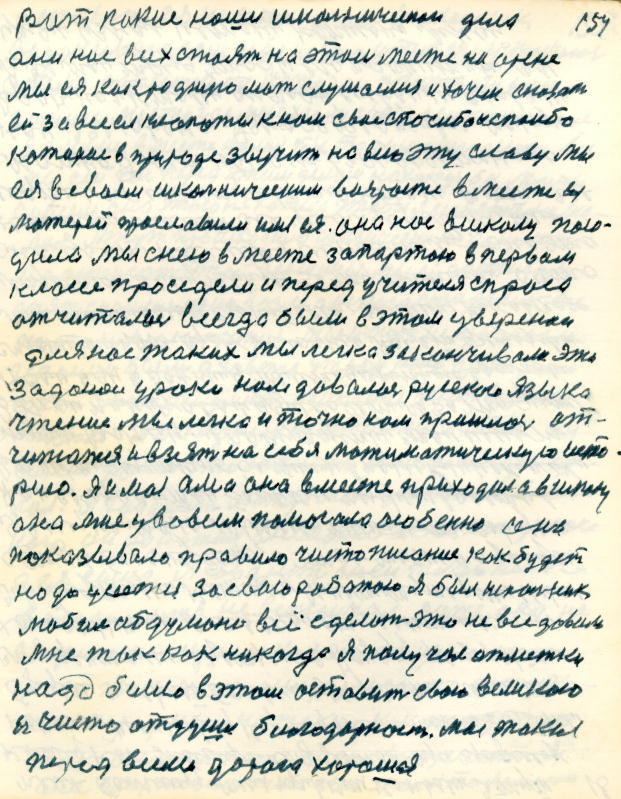 Вот такие наши школьнические дела 154
они нас всих стоят на этом месте на арене
мы ея как родную мат слушаемся и хочим сказат
ей за все ея хлопоты к нам свае спосибо
катарае в природе звучит на всю эту славу мы
ея в своем школническим возрасте вместе ея
матерей прославили она нас в школу пово-
дила мы с нею вместе за партою в первам
класе проседели и перед учителя спроса
отчиталис всегда были в этом уверении
для нас таких мы легка заканчивали эти
заданои уроки нам довалос рускога языка
чтение мы легка и точно нам пришлос от-
читатся и взят на себя матиматическую исто-
рию. Я и моя мама она вместе приходила в школу
она мне у во всем помогала особенно она
показывала правило чистописание как будет
надо за сваю работаю я был школник
мог обдумано всё сделат это не все довали
мне так как никогда я получал атметки
надо было в этом оставит свою великою
и чисто от души благодарност. мы такие
перед всими дорога хорошая